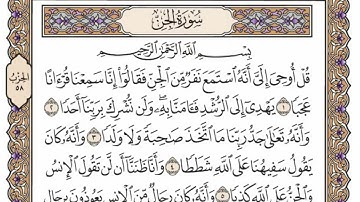 سُورَةُ الجِنِّ
بِسْمِ اللَّهِ الرَّحْمَٰنِ الرَّحِيمِ
قُلْ أُوحِىَ إِلَىَّ أَنَّهُ ٱسْتَمَعَ نَفَرٌ مِّنَ ٱلْجِنِّ فَقَالُوٓا۟ إِنَّا سَمِعْنَا قُرْءَانًا
عَجَبًا ١ يَهْدِىٓ إِلَى ٱلرُّشْدِ فَـَٔامَنَّا بِهِۦ وَلَن نُّشْرِكَ بِرَبِّنَآ أَحَدًا ٢
وَأَنَّهُۥ تَعَٰلَىٰ جَدُّ رَبِّنَا مَا ٱتَّخَذَ صَٰحِبَةً وَلَا وَلَدًا ٣ وَأَنَّهُۥ كَانَ
يَقُولُ سَفِيهُنَا عَلَى ٱللَّهِ شَطَطًا ٤ وَأَنَّا ظَنَنَّآ أَن لَّن تَقُولَ ٱلْإِنسُ
وَٱلْجِنُّ عَلَى ٱللَّهِ كَذِبًا ٥ وَأَنَّهُۥ كَانَ رِجَالٌ مِّنَ ٱلْإِنسِ يَعُوذُونَ بِرِجَالٍ
الحزب
٥٨